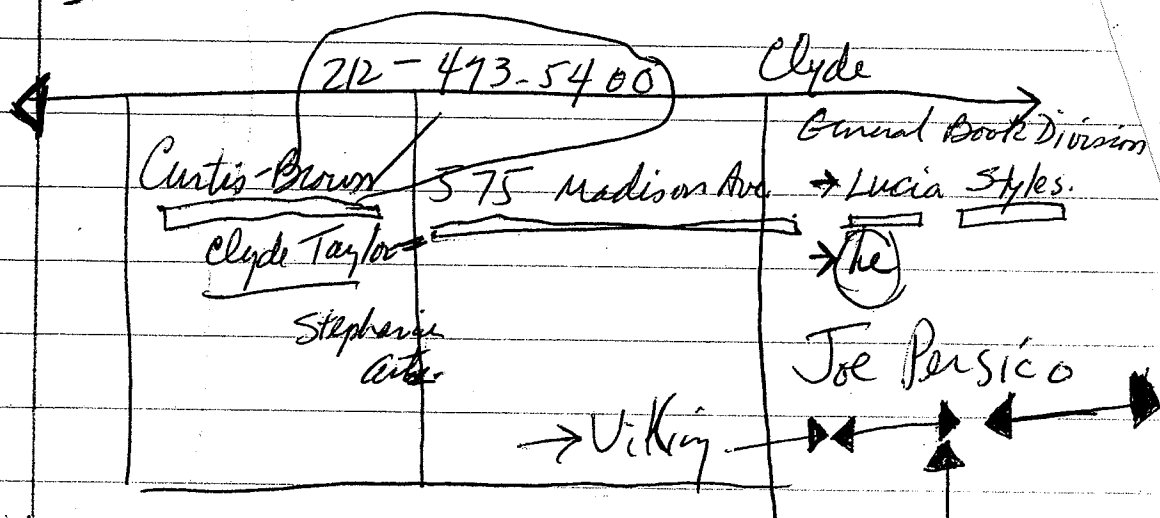 212-473-5400
Clyde
General Book Division
Curtis-Brown 575 Madison Ave. → Lucia Styles.
Clyde Taylor → he
Stephanie
Joe Persico
→ Viking